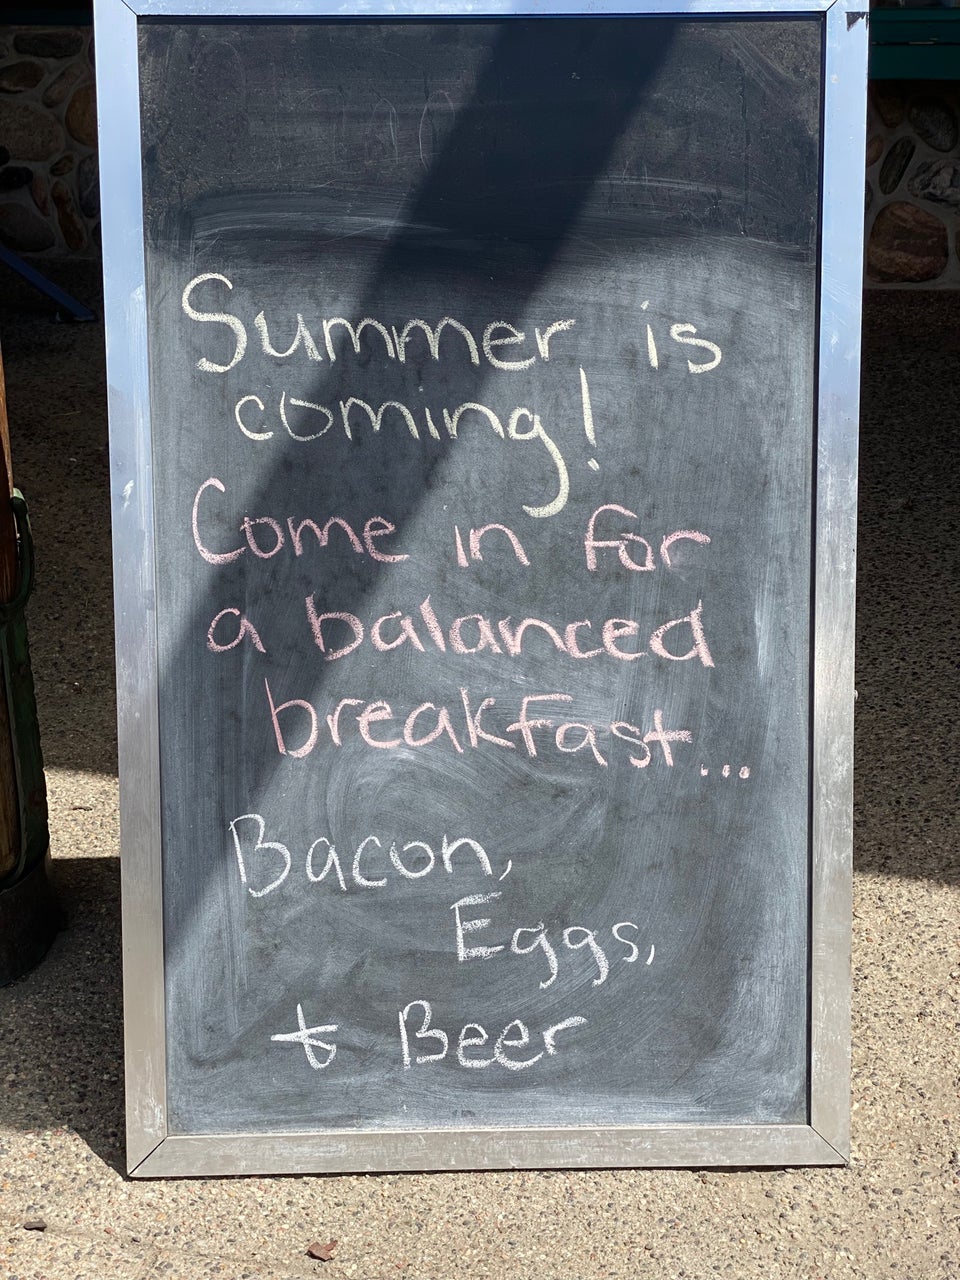 Summer is
coming!
Come in for
a balanced
breakfast...
Bacon,
Eggs,
& Beer